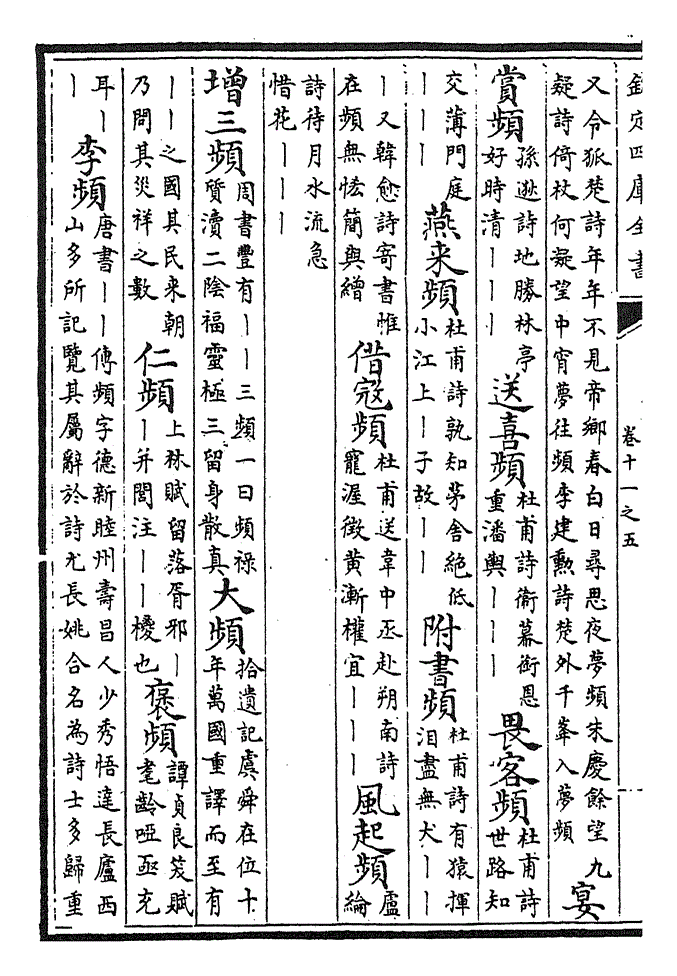 欽定四庫全書
卷十一之五
又令狐楚詩年年不見帝鄉春白日尋思夜夢頻朱慶餘望九
疑詩倚杖何凝望中宵夢往頻李建勳詩楚外千峯入夢頻
宴
賞頻
孫逖詩地勝林亭
好時清｜｜｜
送喜頻
杜甫詩衛幕銜恩
重潘輿｜｜｜
畏客頻
杜甫詩
世路知
交薄門庭
｜｜｜
燕来頻
杜甫詩孰知茅舍絶低
小江上｜子故｜｜
附書頻
杜甫詩有猿揮
泪盡無犬｜｜
｜又韓愈詩寄書惟
在頻無恡簡與繒
借寇頻
杜甫送韋中丞赴朔南詩
寵渥徵黄漸權宜｜｜｜
風起頻
盧
綸
詩待月水流急
惜花｜｜｜
增三頻
周書豐有｜｜三頻一曰頻祿
質瀆二陰福靈極三留身散真
大頻
拾遺記虞舜在位十
年萬國重譯而至有
｜｜之國其民来朝
乃問其災祥之數
仁頻
上林賦留落胥邪｜
｜并閭注｜｜也
褒頻
譚貞良笑賦
耄齡啞亟充
耳｜
｜
李頻
唐書｜｜傳頻字德新睦州壽昌人少秀悟逹長廬西
山多所記覽其屬辭於詩尤長姚合名為詩士多歸重